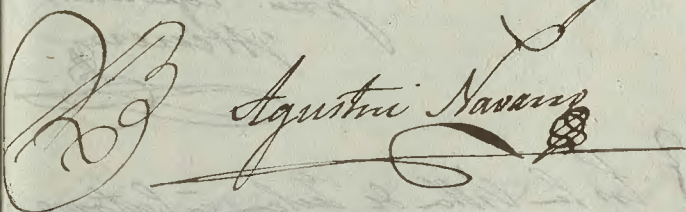 Agustin Navarro